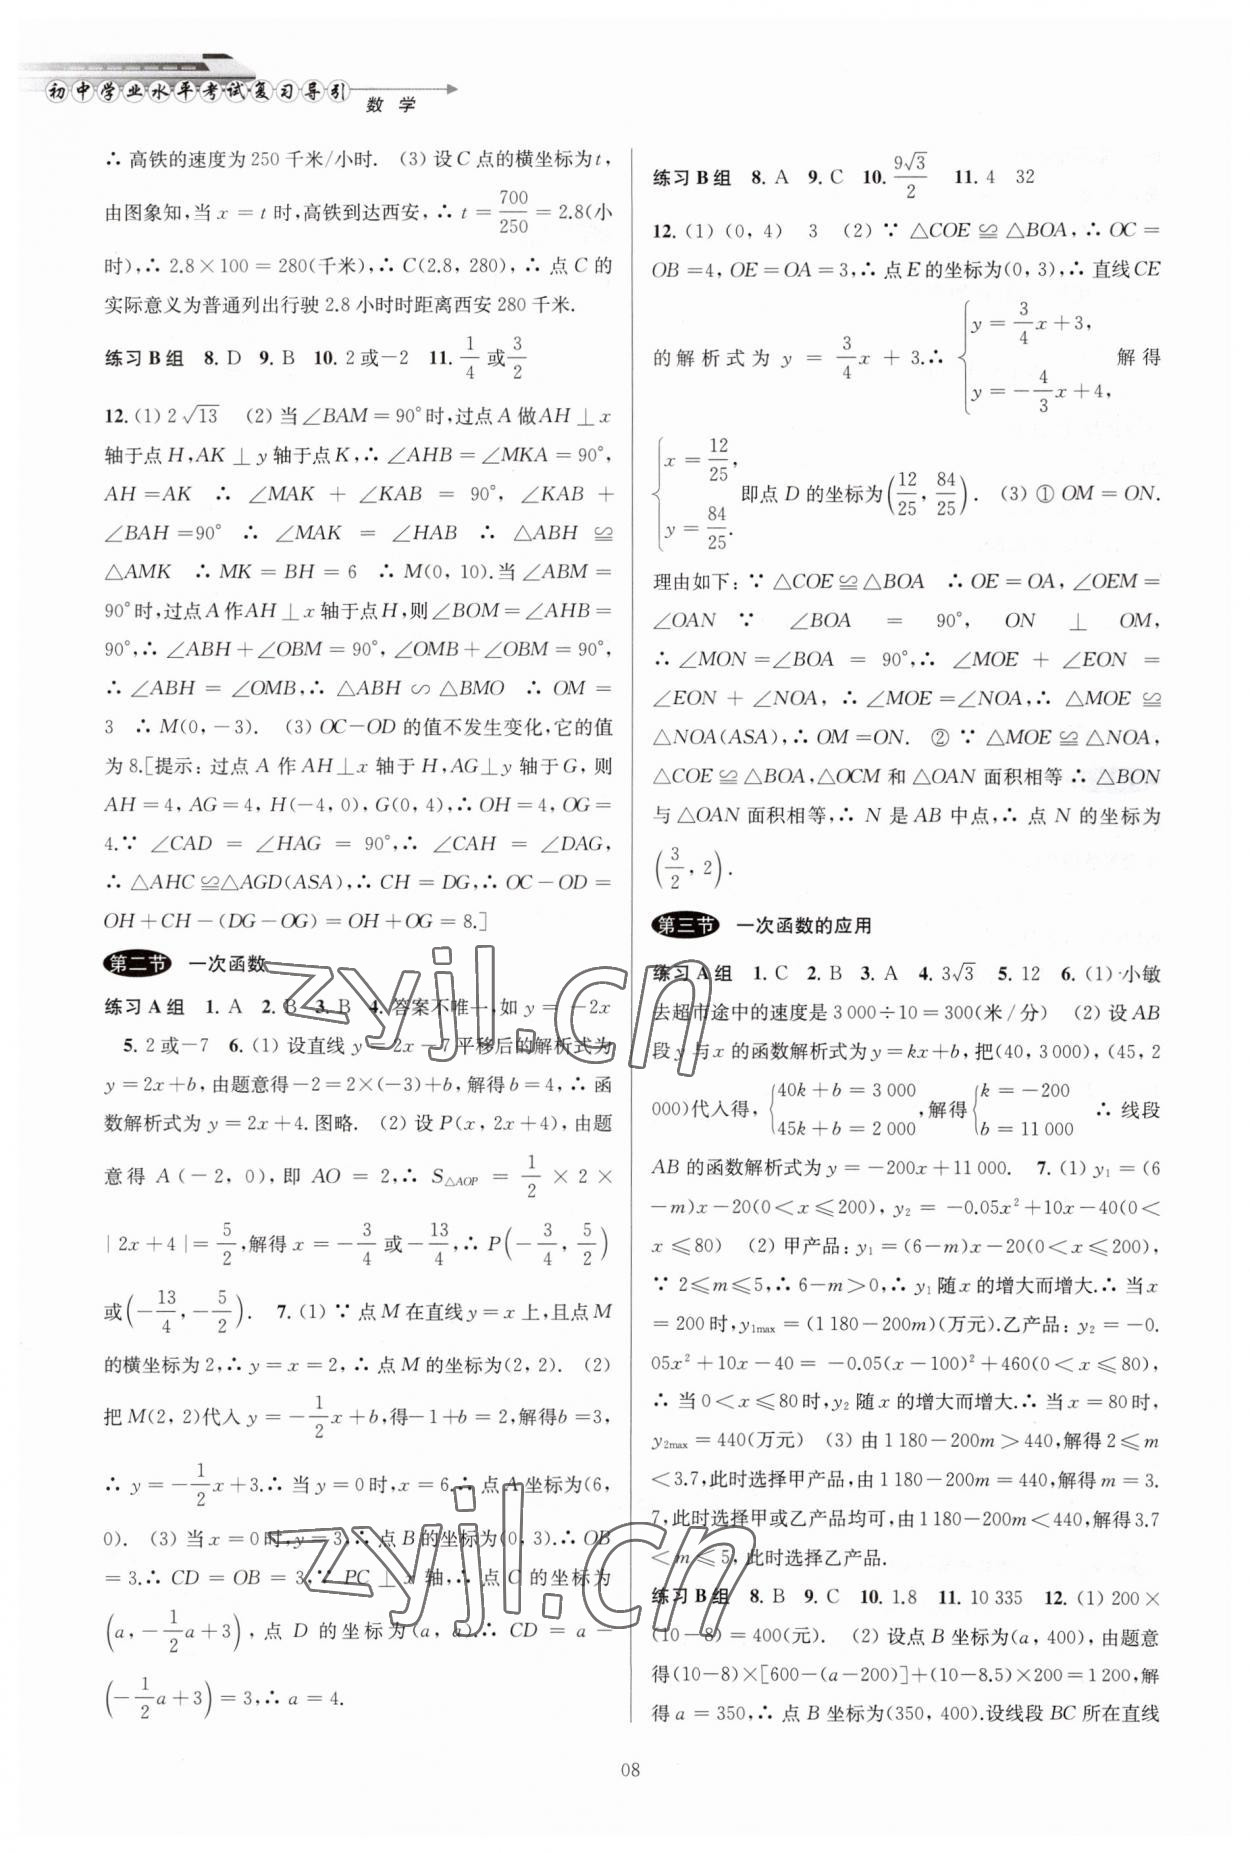 初中学业水平考试复习导引
数 学
∴ 高铁的速度为 250 千米/小时. (3) 设 C 点的横坐标为 t,
由图象知,当 x = t 时,高铁到达西安,∴ t = 700/250 = 2.8(小
时),∴ 2.8×100 = 280(千米),∴ C(2.8, 280),∴ 点 C 的
实际意义为普通列出行驶 2.8 小时时距离西安 280 千米.
练习 B 组 8. D 9. B 10. 2 或-2 11. 1/4 或 3/2
12. (1) 2√13 (2) 当 ∠BAM = 90°时,过点 A 做 AH ⊥ x
轴于点 H,AK ⊥ y 轴于点 K,∴ ∠AHB = ∠MKA = 90°,
AH = AK ∴ ∠MAK + ∠KAB = 90°, ∠KAB +
∠BAH = 90° ∴ ∠MAK = ∠HAB ∴ △ABH ≌
△AMK ∴ MK = BH = 6 ∴ M(0, 10).当 ∠ABM =
90°时,过点 A 作 AH ⊥ x 轴于点 H,则∠BOM = ∠AHB =
90°,∴ ∠ABH + ∠OBM = 90°, ∠OMB + ∠OBM = 90°,
∴ ∠ABH = ∠OMB,∴ △ABH ∽ △BMO ∴ OM =
3 ∴ M(0, -3). (3) OC-OD 的值不发生变化,它的值
为 8.[提示:过点 A 作 AH⊥x 轴于 H,AG⊥y 轴于 G,则
AH = 4, AG = 4, H(-4, 0), G(0, 4),∴ OH = 4, OG =
4.∵ ∠CAD = ∠HAG = 90°,∴ ∠CAH = ∠DAG,
∴ △AHC ≌△AGD(ASA),∴ CH = DG,∴ OC - OD =
OH + CH - (DG - OG) = OH + OG = 8.]
第二节 一次函数
练习 A 组 1. A 2. B 3. B 4. 答案不唯一,如 y = -2x
5. 2 或-7 6. (1) 设直线 y = 2x - 7 平移后的解析式为
y = 2x + b,由题意得-2 = 2×(-3)+b,解得 b = 4,∴ 函
数解析式为 y = 2x + 4.图略. (2) 设 P(x, 2x+4),由题
意得 A(-2, 0),即 AO = 2,∴ S△AOP = 1/2 × 2 ×
| 2x + 4 | = 5/2,解得 x = -3/4 或-13/4,∴ P(-3/4, 5/2)
或(-13/4, -5/2). 7. (1) ∵ 点 M 在直线 y = x 上,且点 M
的横坐标为 2,∴ y = x = 2,∴ 点 M 的坐标为(2, 2). (2)
把 M(2, 2)代入 y = -1/2x + b,得-1+b = 2,解得b=3,
∴ y = -1/2x + 3.∴ 当 y = 0 时,x = 6.∴ 点 A 坐标为(6,
0). (3) 当 x = 0 时,y = 3,∴ 点 B 的坐标为(0, 3).∴ OB
= 3.∴ CD = OB = 3,∵ PC ⊥ x 轴,∴ 点 C 的坐标为
(a, -1/2a + 3), 点 D 的坐标为(a, a).∴ CD = a -
(-1/2a + 3) = 3,∴ a = 4.
练习 B 组 8. A 9. C 10. 9√3/2 11. 4 32
12. (1) (0, 4) 3 (2) ∵ △COE ≌ △BOA,∴ OC =
OB = 4, OE = OA = 3,∴ 点 E 的坐标为(0, 3),∴ 直线 CE
的解析式为 y = 3/4x + 3.∴ {y = 3/4x + 3, y = -4/3x + 4, 解得
{x = 12/25, y = 84/25. 即点 D 的坐标为(12/25, 84/25). (3) ① OM = ON.
理由如下:∵ △COE ≌ △BOA ∴ OE = OA, ∠OEM =
∠OAN ∵ ∠BOA = 90°, ON ⊥ OM,
∴ ∠MON = ∠BOA = 90°,∴ ∠MOE + ∠EON =
∠EON + ∠NOA, ∴ ∠MOE = ∠NOA,∴ △MOE ≌
△NOA(ASA),∴ OM = ON. ② ∵ △MOE ≌ △NOA,
△COE ≌ △BOA,△OCM 和 △OAN 面积相等 ∴ △BON
与 △OAN 面积相等,∴ N 是 AB 中点,∴ 点 N 的坐标为
(3/2, 2).
第三节 一次函数的应用
练习 A 组 1. C 2. B 3. A 4. 3√3 5. 12 6. (1) 小敏
去超市途中的速度是 3 000÷10 = 300(米/分) (2) 设 AB
段 y 与 x 的函数解析式为 y = kx + b,把(40, 3 000),(45, 2
000)代入得,{40k + b = 3 000 45k + b = 2 000,解得{k = -200 b = 11 000 ∴ 线段
AB 的函数解析式为 y = -200x + 11 000. 7. (1) y₁ = (6
- m)x - 20(0 < x ≤ 200), y₂ = -0.05x² + 10x - 40(0 <
x ≤ 80) (2) 甲产品:y₁ = (6-m)x - 20(0 < x ≤ 200),
∵ 2 ≤ m ≤ 5,∴ 6-m > 0,∴ y₁ 随 x 的增大而增大.∴ 当 x
= 200 时,y₁max = (1 180-200m)(万元).乙产品:y₂ = -0.
05x² + 10x - 40 = -0.05(x-100)² + 460(0 < x ≤ 80),
∴ 当 0 < x ≤ 80 时,y₂ 随 x 的增大而增大.∴ 当 x = 80 时,
y₂max = 440(万元) (3) 由 1 180-200m > 440,解得 2 ≤ m
< 3.7,此时选择甲产品,由 1 180-200m = 440,解得 m = 3.
7,此时选择甲或乙产品均可,由 1 180-200m < 440,解得 3.7
< m ≤ 5,此时选择乙产品.
练习 B 组 8. B 9. C 10. 1.8 11. 10 335 12. (1) 200 ×
(10-8) = 400(元). (2) 设点 B 坐标为(a, 400),由题意
得(10-8)×[600-(a-200)]+(10-8.5)×200 = 1 200,解
得 a = 350,∴ 点 B 坐标为(350, 400).设线段 BC 所在直线
08
zyjl.cn
zyjl.cn